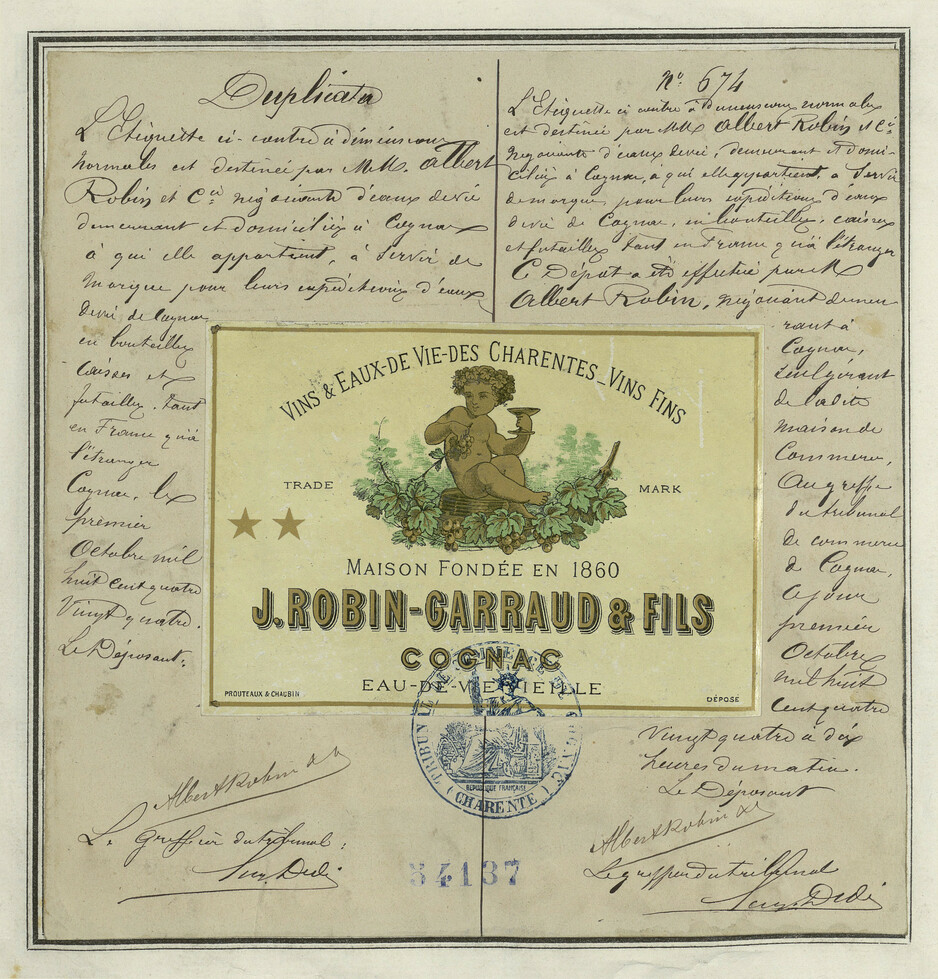 Duplicata
L'Etiquette ci-contre à dimensions
normales est destinée par MM. Albert
Robin et Cie négociants d'eaux de vie
demeurant et domiciliés à Cognac
à qui elle appartient, à servir de
marque pour leurs expéditions d'eaux
de vie de Cognac
en bouteilles
caisses et
futailles, tant
en France qu'à
l'étranger
Cognac, le
premier
Octobre mil
huit cent quatre
Vingt quatre.
Le Déposant:
Albert Robin
Le Greffier du tribunal:
No 674
L'Etiquette ci contre à dimensions normales
est destinée par MM Albert Robin et Cie
négociants d'eaux de vie, demeurant et domi-
ciliés à Cognac, à qui elle appartient, à servir
de marque pour leurs expéditions d'eaux
de vie de Cognac, en bouteilles, caisses
et futailles tant en France qu'à l'étranger
Ce Dépôt a été effectué par M
Albert Robin, négociant demeu
rant à
Cognac,
seul gérant
de la dite
maison de
Commerce,
Au greffe
du tribunal
de commerce
de Cognac,
ce jour
premier
Octobre
mil huit
cent quatre
Vingt quatre à dix
heures du matin.
Le Déposant
Albert Robin
Le greffier du tribunal
VINS & EAUX-DE VIE-DES CHARENTES_VINS FINS
TRADE MARK
MAISON FONDÉE EN 1860
J. ROBIN-GARRAUD & FILS
COGNAC
EAU-DE-VIE VIEILLE
PROUTEAUX & CHAUBIN
DÉPOSÉ
TRIBUNAL DE COMMERCE DE COGNAC
RÉPUBLIQUE FRANÇAISE
(CHARENTE)
54137